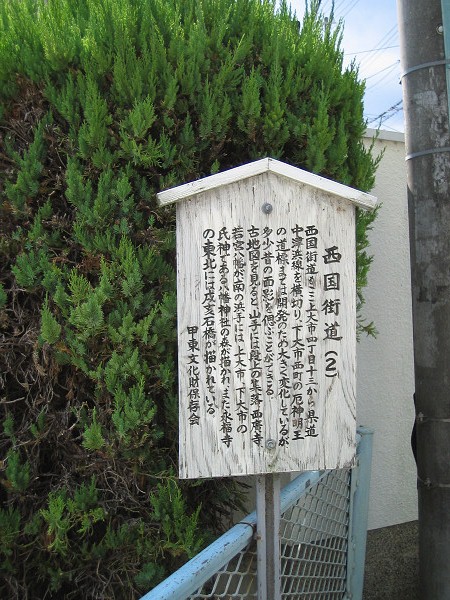 西国街道（2）
西国街道は、上大市四丁目十三から県道
中津浜線を横切り、下大市西町の厄神明王
の道標までは開発のため大きく変化しているが
多少昔の面影を偲ぶことができる。
古地図を見ると、山手には段上の集落、西広寺
若宮八幡が、南の浜手には、上大市、下大市の
氏神である八幡神社の森が描かれ、また永福寺
の東北には戌亥石橋が描かれている。
甲東文化財保存会